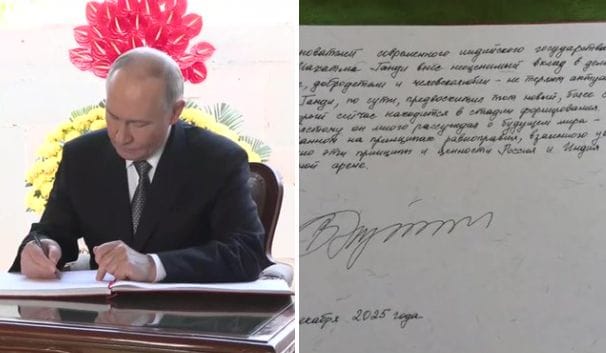 нователей современного индийского государства
Махатма Ганди внёс неоценимый вклад в дел
добродетели и человеколюбии - не теряет актуа
Ганди, по сути, предвосхитил тот новый, более с
рый сейчас находится в стадии формирования.
он много рассуждал о будущем мира -
анном на принципах равноправия, взаимного ув
но эти принципы и ценности Россия и Индия
ной арене.
екабря 2025 года.